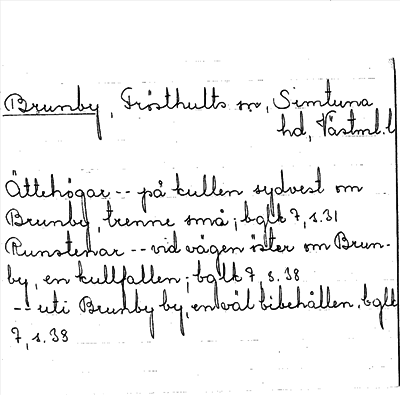 Brunby, Frösthults sn, Simtuna
hd, Västml. l
Ättehögar -- på kullen sydvest om
Brunby, trenne små; bglk 7, s. 31
Runstenar -- vid vägen öster om Brun-
by, en kullfallen; bglk 7, s. 38
-- uti Brunby by, en väl bibehållen. bglk
7, s. 38